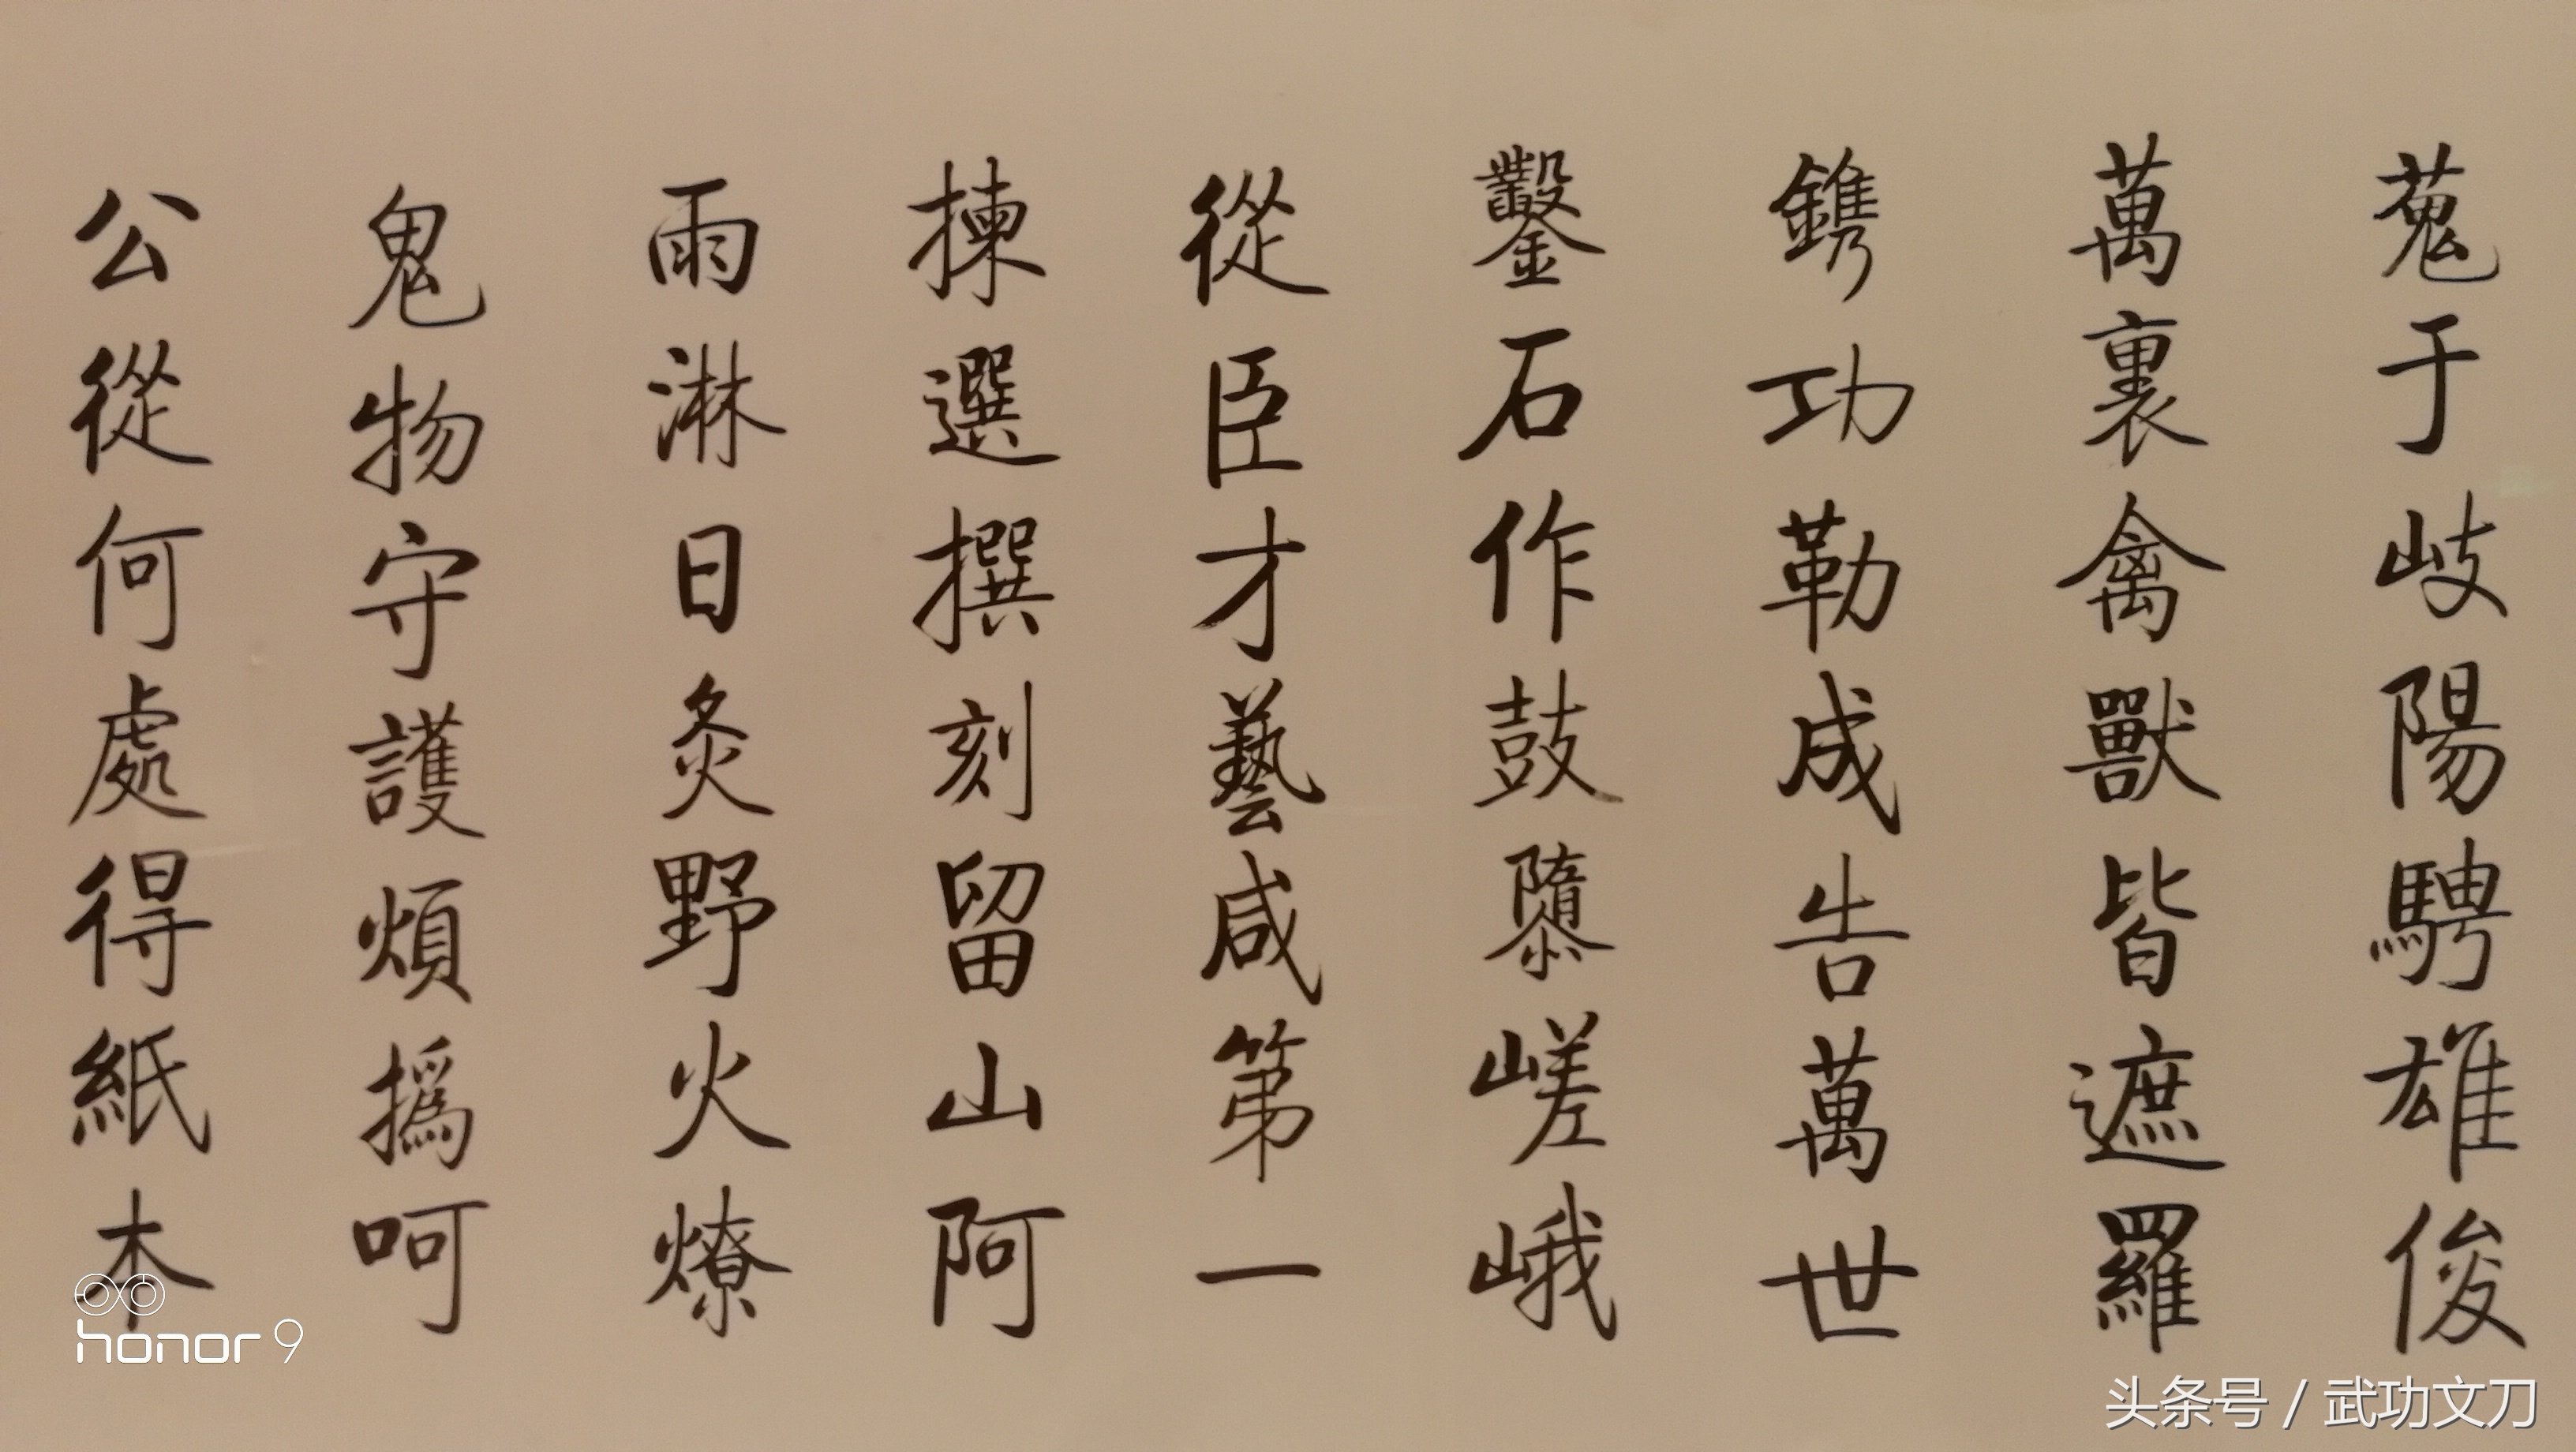 蒐于岐陽騁雄俊
萬裏禽獸皆遮羅
鐫功勒成告萬世
鑿石作鼓隳嵯峨
從臣才藝咸第一
揀選撰刻留山阿
雨淋日灸野火燎
鬼物守護煩撝呵
公從何處得紙本
honor 9
头条号 / 武功文刀